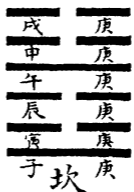 戌 庚
申 庚
午 庚
辰 庚
寅 庚
子 坎 庚